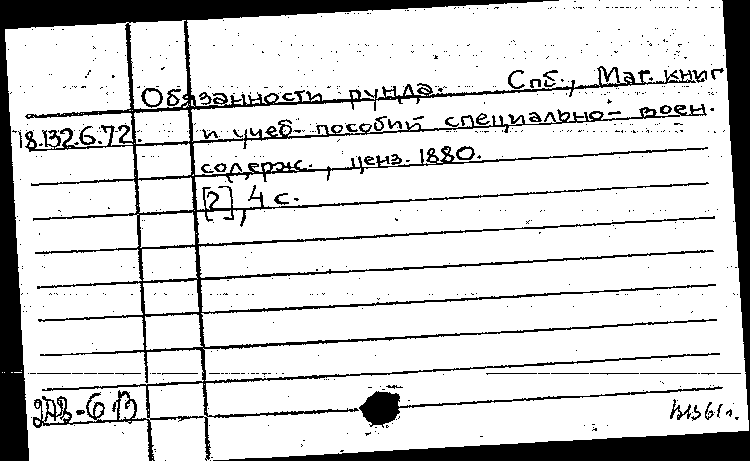 Обязанности рунда. Спб., Маг. книг
18.132.6.72. и учеб. пособий специально-воен.
содерж., ценз. 1880.
[2], 4 с.